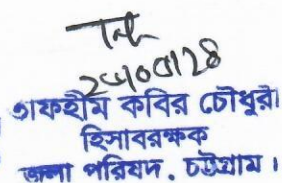 তাফহীম কবির চৌধুরী
হিসাবরক্ষক
জেলা পরিষদ, চট্টগ্রাম।